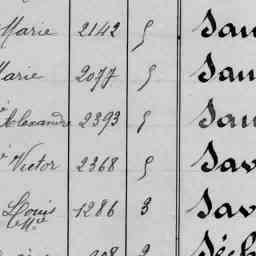 Marie 2142 5 Sau
Marie 2077 5 Sau
Alexandre 2393 5 Sau
Victor 2368 5 Sav
Louis 1286 3 Sav